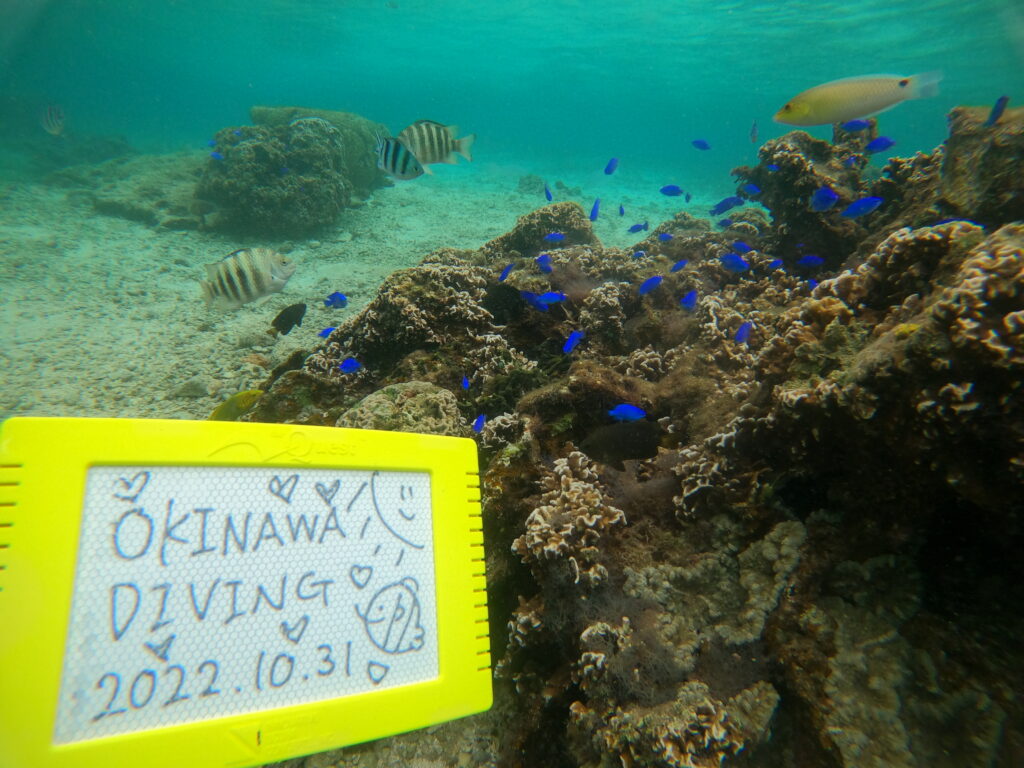 OKINAWA
DIVING
2022.10.31